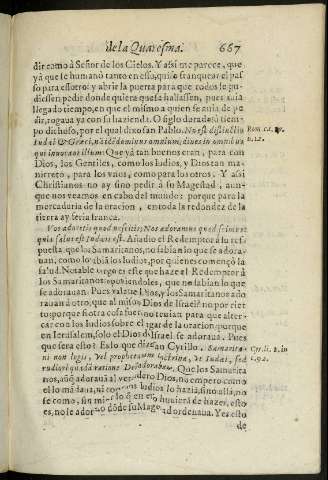 de la Quaresma. 667
dir como à Señor de los Cielos. Y assi me parece, que
yà que se humanò tanto en esso, quiso franquear el pas
so para esto: y abrir la puerta para que todos le pu-
diessen pedir donde quiera que se hallassen, pues auia
llegado tiempo, en que el mismo a quien se auia de pe
dir, rogaua ya con su hazienda. O siglo dorado! ô tiem
po dichoso, por el qual dixo san Pablo. Nu est distinctio
Iudæi & Græci, nã idem dominus omnium, diues in omnes
qui inuocant illum. Que yà tan buenos eran, para con
Dios, los Gentiles, como los Iudios, y Dios tan ma-
nirroto, para los vnos, como para los otros. Y assi
Christianos no ay sino pedir â su Magestad, aun-
que nos veamos en cabo del mundo: porque para la
mercaduria de la oracion, en toda la redondez de la
tierra ay feria franca.
Vos adoratis quod nescitis: Nos adoramus quod scimus
quia salus est Iudæis est. Añadio el Redemptor à su res
puesta, que los Samaritanos, no sabian lo que se adora-
uan, como lo sabiã los Iudios, por quienes començò la
salud. Notable es este que haze el Redemptor â
los Samaritanos oponiendoles, que no sabian lo que
se adorauan. Pues valate Dios, y los Samaritanos ado
rauan â otro, que al mismo Dios de Israel? no por cier
to porque si otra cosa fuera no tenian para que alter-
car con los Iudios sobre el lugar de la oracion, porque
en Ierusalem, solo el Dios de Israel se adoraua. Pues
que sera esto? Esto que dize san Cyrillo. Samarita-
ni non legis, vel prophetarum doctrina, vt Iudæi, sed
rudiori quadã ratione Deũ adorabant. Que los Samarita
nos, aũq̃ adorauã al verdadero Dios, no empero como
el lo mandaua, ni como los Iudios lo haziã, sino alla, no
se como, sin mirar lo q̃ en ello huuiera de hazer, esto
es, no se adorò dõde su Magestad ordenaua. Yes esto
de
Rom. 10. nu.
12.
Cyr. li. 2. in